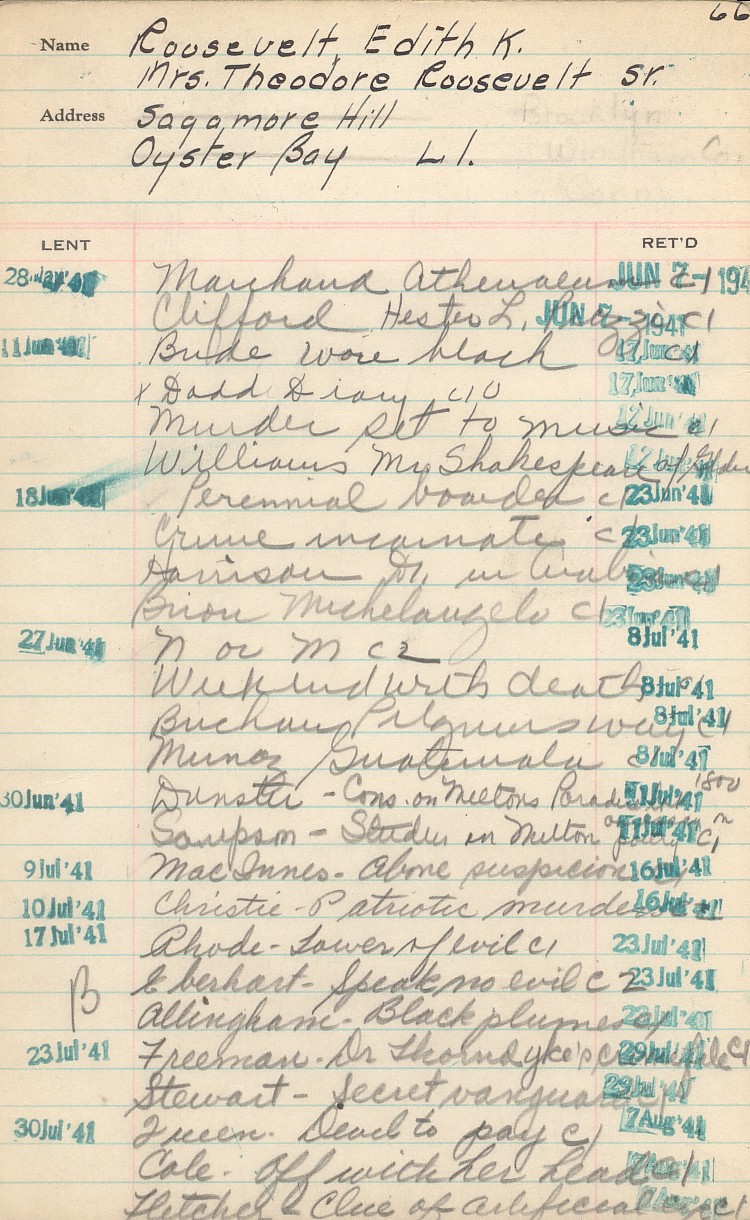 66
Name Roosevelt, Edith K.
Mrs. Theodore Roosevelt Sr.
Address Sagamore Hill
Oyster Bay L I.
LENT RET'D
28 41 Marchand Athenaeum c1 JUN 7- 194
Clifford Hester L. Piozzi c1 JUN 7- 1941
11 Jun '41 Bride wore black c1 17 Jun
x Dodd Diary c10 17 Jun '41
Murder set to music c1 17 Jun '41
Williams Mr Shakespeare of
18 Jun '41 Perennial boarder c1 23 Jun '41
Crime incarnate c1 23 Jun '41
Harrison Dr. in Arabia c1 23 Jun '41
Brion Michelangelo c1 23 Jun '41
27 Jun '41 N or M c2 8 Jul '41
Weekend with death c1 8 Jul '41
Buchan Pilgrims way c1 8 Jul '41
Munoz Guatemala c 8 Jul '41
30 Jun '41 Dunster - Cons. on Miltons Paradise 1800 11 Jul '41
Sampson - Studies in Milton poetry c1 11 Jul '41
9 Jul '41 MacInnes - Above suspicion c1 16 Jul '41
10 Jul '41 Christie - Patriotic murders c1 16 Jul '41
17 Jul '41 Rhode - Tower of evil c1 23 Jul '41
B Eberhart - Speak no evil c2 23 Jul '41
Allingham - Black plumes c1 23 Jul '41
23 Jul '41 Freeman - Dr Thorndyke's crime file c1 29 Jul '41
Stewart - Secret vanguard c1 29 Jul '41
30 Jul '41 Queen - Devil to pay c1 7 Aug '41
Cole - Off with her head c1 7 Aug '41
Fletcher - Clue of artificial eye c1 7 Aug '41